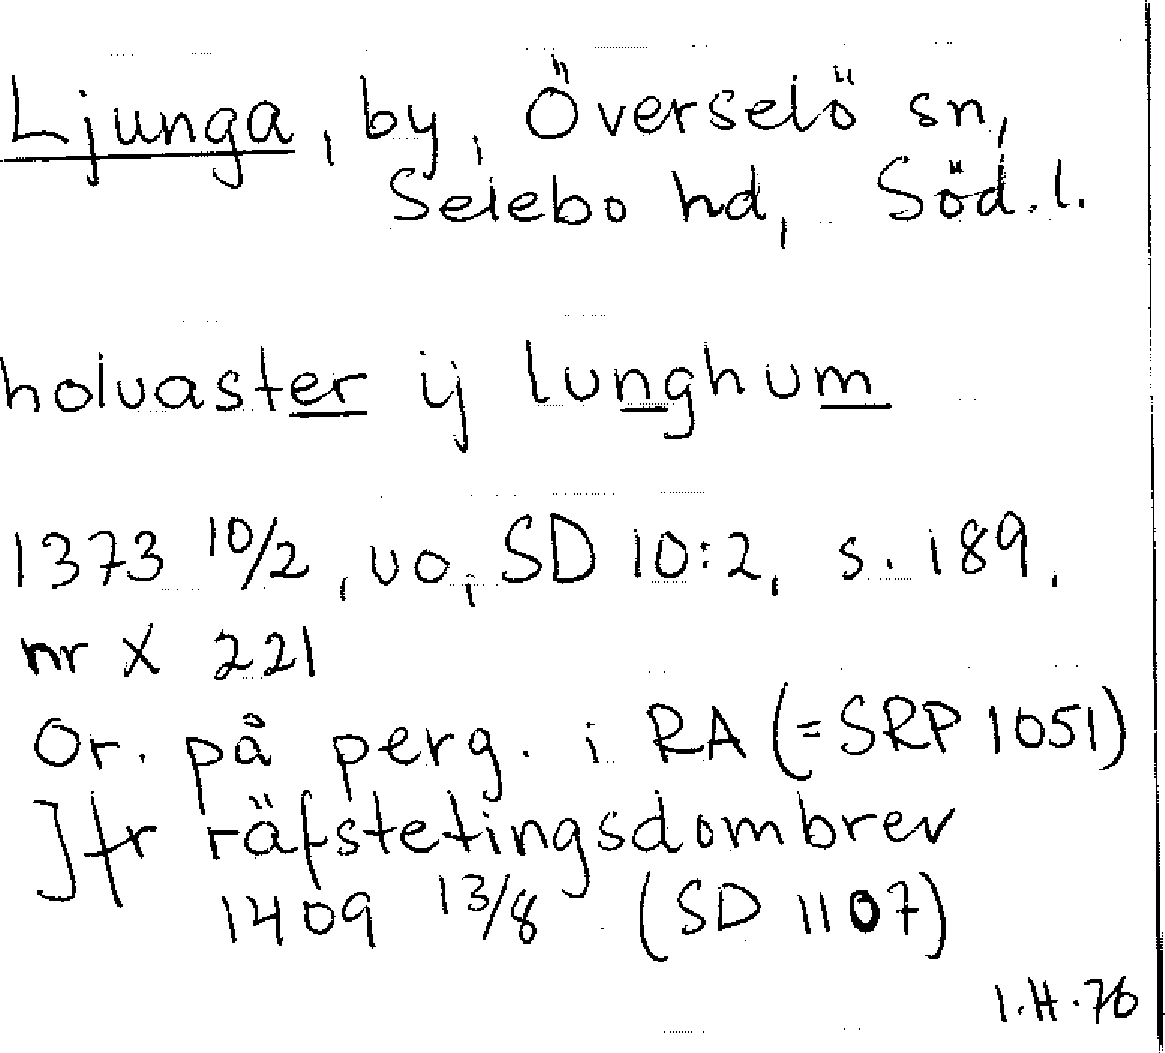 Ljunga, by, Överselö sn,
Selebo hd, Söd. l.
holuaster ij lunghum
1373 10/2, uo, SD 10:2, s. 189,
nr X 221
Or. på perg. i RA (=SRP 1051)
Jfr räfstetingsdombrev
1409 13/8 (SD 1107)
I.H.76